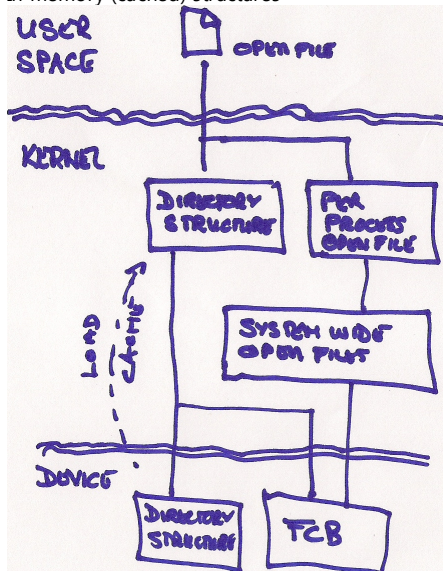 memory (cached) structures
USER
SPACE
OPEN FILE
KERNEL
DIRECTORY
STRUCTURE
PER
PROCESS
OPEN FILE
LOAD
CACHE
SYSTEM WIDE
OPEN FILES
DEVICE
DIRECTORY
STRUCTURE
FCB